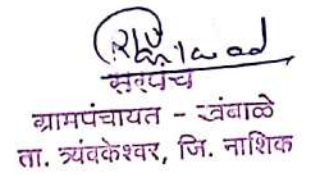 सरपंच
ग्रामपंचायत - खंबाळे
ता. त्र्यंबकेश्वर, जि. नाशिक